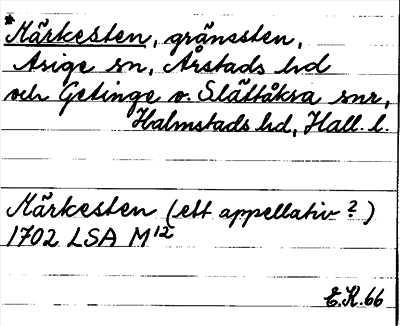 *Märkesten, gränssten,
Asige sn, Årstads hd
och Getinge o. Slättåkra snr,
Halmstads hd, Hall. l.
Märkesten (ett appellativ ?)
1702 LSA M 12
E.K. 66